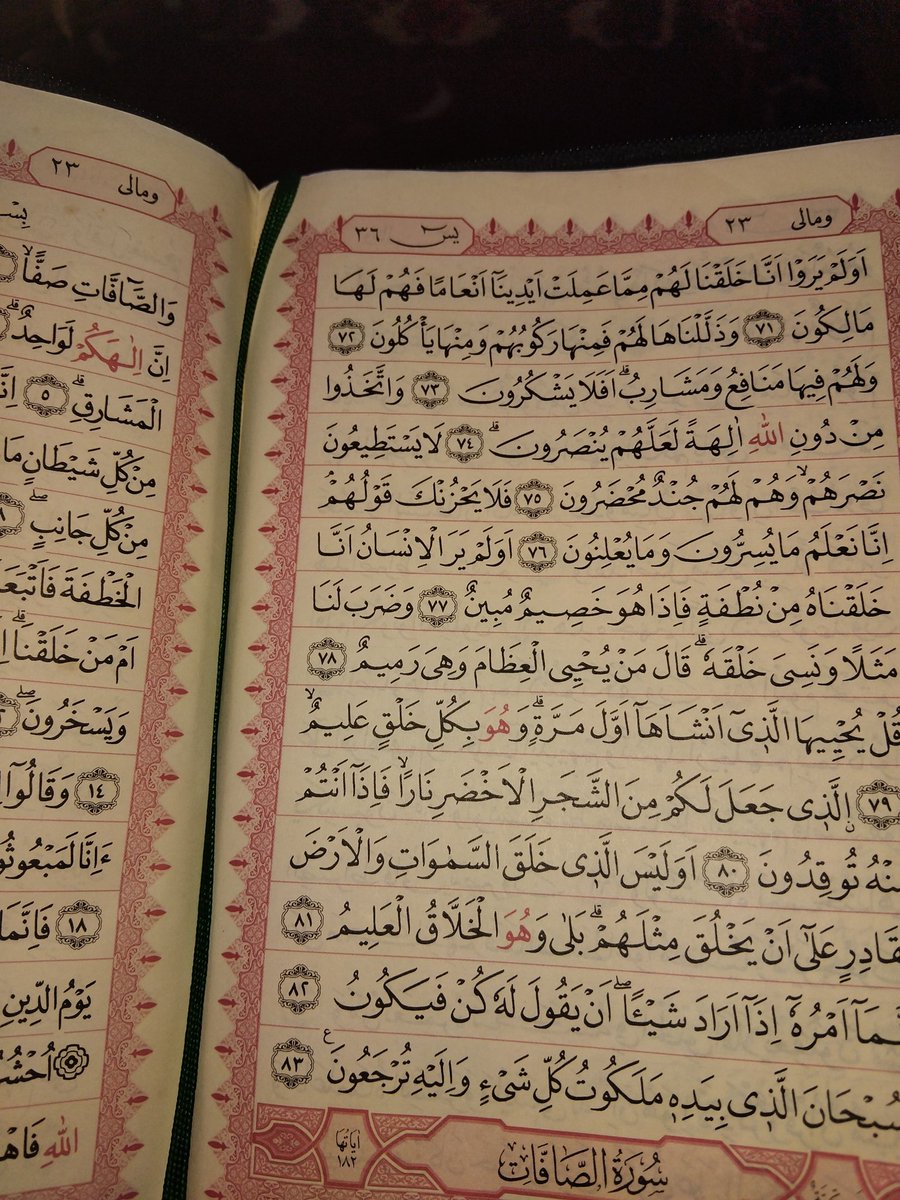 ومالى ٢٣
يس ٣٦
اَوَلَمْ يَرَوْا اَنَّا خَلَقْنَا لَهُمْ مِمَّا عَمِلَتْ اَيْدِينَٓا اَنْعَامًا فَهُمْ لَهَا
مَالِكُونَ ﴿٧١﴾ وَذَلَّلْنَاهَا لَهُمْ فَمِنْهَا رَكُوبُهُمْ وَمِنْهَا يَأْكُلُونَ ﴿٧٢﴾
وَلَهُمْ فِيهَا مَنَافِعُ وَمَشَارِبُۜ اَفَلَا يَشْكُرُونَ ﴿٧٣﴾ وَاتَّخَذُوا
مِنْ دُونِ اللّٰهِ اٰلِهَةً لَعَلَّهُمْ يُنْصَرُونَۜ ﴿٧٤﴾ لَا يَسْتَطِيعُونَ
نَصْرَهُمْۙ وَهُمْ لَهُمْ جُنْدٌ مُحْضَرُونَ ﴿٧٥﴾ فَلَا يَحْزُنْكَ قَوْلُهُمْ
اِنَّا نَعْلَمُ مَا يُسِرُّونَ وَمَا يُعْلِنُونَ ﴿٧٦﴾ اَوَلَمْ يَرَ الْاِنْسَانُ اَنَّا
خَلَقْنَاهُ مِنْ نُطْفَةٍ فَاِذَا هُوَ خَصِيمٌ مُبِينٌ ﴿٧٧﴾ وَضَرَبَ لَنَا
مَثَلًا وَنَسِىَ خَلْقَهُۜ قَالَ مَنْ يُحْيِى الْعِظَامَ وَهِىَ رَمِيمٌ ﴿٧٨﴾
قُلْ يُحْيِيهَا الَّذِٓى اَنْشَاَهَٓا اَوَّلَ مَرَّةٍۜ وَهُوَ بِكُلِّ خَلْقٍ عَلِيمٌۙ
﴿٧٩﴾ اَلَّذِى جَعَلَ لَكُمْ مِنَ الشَّجَرِ الْاَخْضَرِ نَارًاۙ فَاِذَٓا اَنْتُمْ
مِنْهُ تُوقِدُونَ ﴿٨٠﴾ اَوَلَيْسَ الَّذِى خَلَقَ السَّمٰوَاتِ وَالْاَرْضَ
بِقَادِرٍ عَلٰٓى اَنْ يَخْلُقَ مِثْلَهُمْۜ بَلٰى وَهُوَ الْخَلَّاقُ الْعَلِيمُ ﴿٨١﴾
اِنَّمَٓا اَمْرُهُٓ اِذَٓا اَرَادَ شَيْـًٔاۖ اَنْ يَقُولَ لَهُ كُنْ فَيَكُونُ ﴿٨٢﴾
فَسُبْحَانَ الَّذِى بِيَدِهِ مَلَكُوتُ كُلِّ شَىْءٍ وَاِلَيْهِ تُرْجَعُونَ ﴿٨٣﴾ ع
سُورَةُ الصَّافَّاتِ
اٰيَاتُهَا ١٨٢
ومالى ٢٣
وَالصَّٓافَّاتِ صَفًّاۙ
اِنَّ اِلٰهَكُمْ لَوَاحِدٌۜ
الْمَشَارِقِۜ ﴿٥﴾
مِنْ كُلِّ شَيْطَانٍ
مِنْ كُلِّ جَانِبٍۖ
الْخَطْفَةَ
اَمْ مَنْ خَلَقْنَاۜ
وَيَسْخَرُونَۖ
﴿١٤﴾ وَقَالُٓوا
ءَاِنَّا
﴿١٨﴾ فَاِنَّمَا
يَوْمُ الدِّينِ
اللّٰهِ